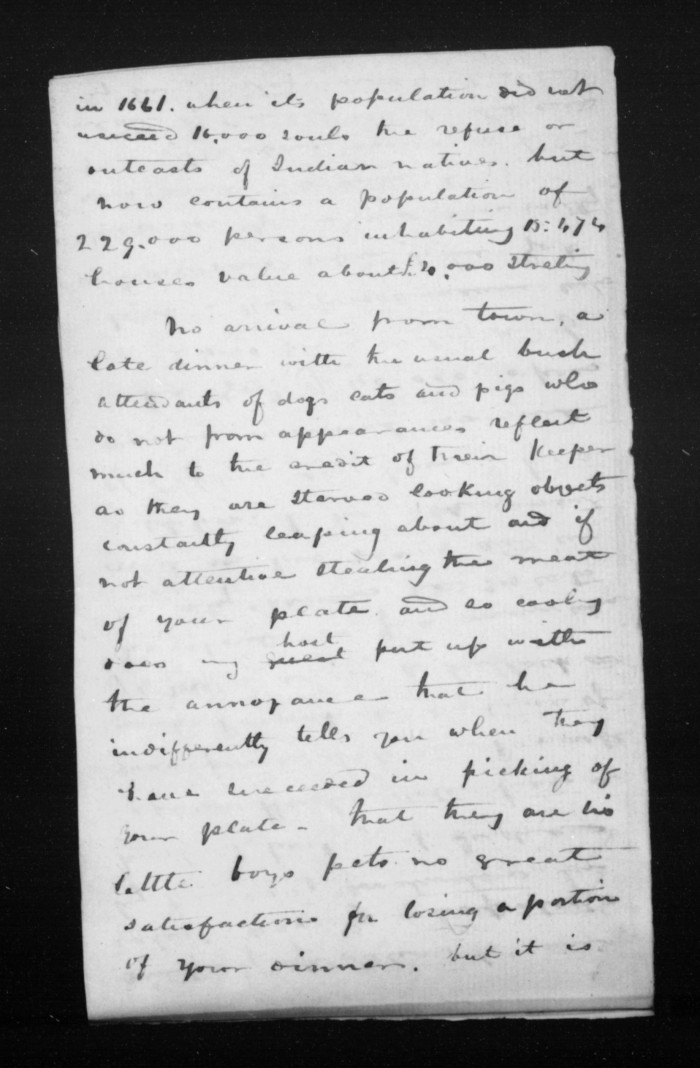 in 1661. when its population did not
exceed 16,000 souls the refuse or
outcasts of Indian natives. but
now contains a population of
229,000 persons inhabiting 15:474
houses value about £ ,000 Streling
No arrival from town, a
late dinner with the usual bush
attendants of dogs cats and pigs who
do not from appearances reflect
much to the credit of their Keeper
as they are starved looking objects
constantly leaping about and if
not attentive stealing the meat
of your plate. and so cooly
does my guest host put up with
the annoyance that he
indifferently tells you when they
have succeeded in picking of
your plate - that they are his
little boys pets. no great
satisfaction for losing a portion
of your dinner. but it is